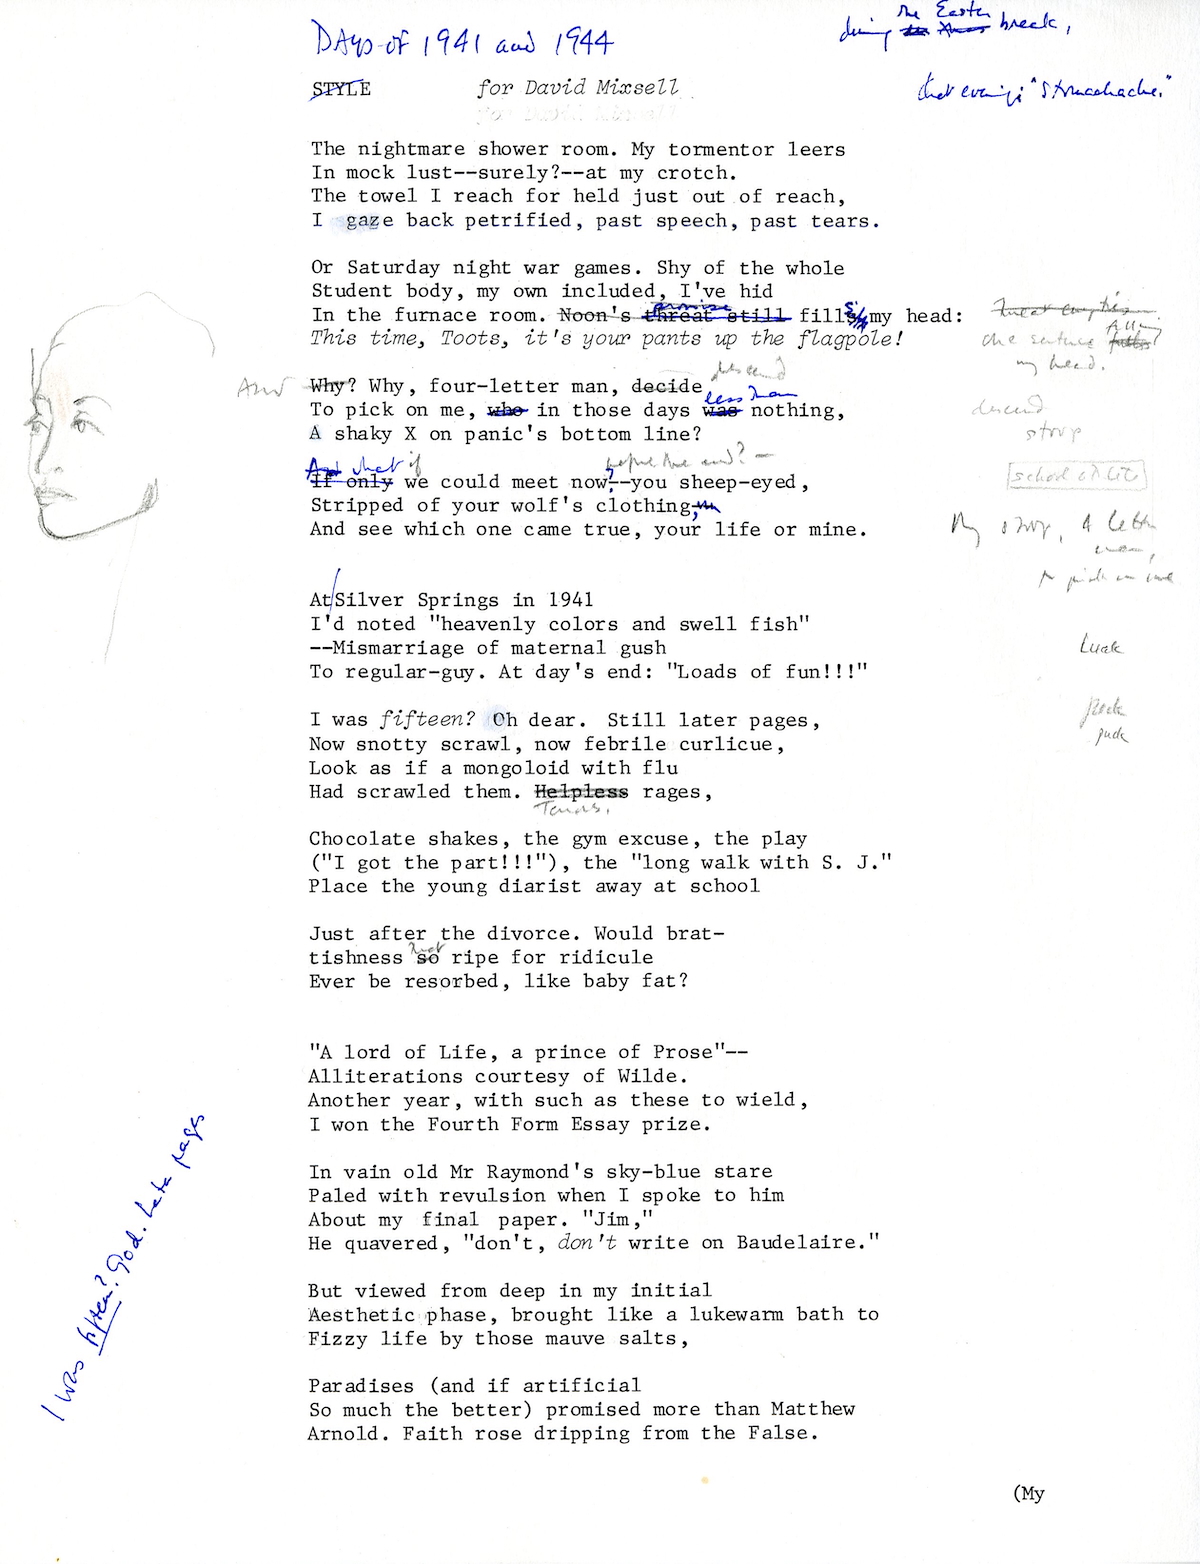 during the Easter break,
Days of 1941 and 1944
that evening: "Stomachache."
STYLE for David Mixsell
The nightmare shower room. My tormentor leers
In mock lust--surely?--at my crotch.
The towel I reach for held just out of reach,
I gaze back petrified, past speech, past tears.
Or Saturday night war games. Shy of the whole
Student body, my own included, I've hid
promise
In the furnace room. Noon's threat still fills my head:
This time, Toots, it's your pants up the flagpole!
one sentence
my head.
descend
And Why? Why, four-letter man, decide
less than
To pick on me, who in those days was nothing,
descend
stoop
A shaky X on panic's bottom line?
And what if before the end?
If only we could meet now?--you sheep-eyed,
Stripped of your wolf's clothing,
And see which one came true, your life or mine.
At Silver Springs in 1941
I'd noted "heavenly colors and swell fish"
--Mismarriage of maternal gush
Luck
To regular-guy. At day's end: "Loads of fun!!!"
I was fifteen? Oh dear. Still later pages,
Now snotty scrawl, now febrile curlicue,
Look as if a mongoloid with flu
Had scrawled them. Helpless rages,
Tears,
Chocolate shakes, the gym excuse, the play
("I got the part!!!"), the "long walk with S. J."
Place the young diarist away at school
Just after the divorce. Would brat-
tishness so ripe for ridicule
Ever be resorbed, like baby fat?
"A lord of Life, a prince of Prose"--
Alliterations courtesy of Wilde.
Another year, with such as these to wield,
I won the Fourth Form Essay prize.
In vain old Mr Raymond's sky-blue stare
Paled with revulsion when I spoke to him
About my final paper. "Jim,"
He quavered, "don't, don't write on Baudelaire."
But viewed from deep in my initial
Aesthetic phase, brought like a lukewarm bath to
Fizzy life by those mauve salts,
Paradises (and if artificial
So much the better) promised more than Matthew
Arnold. Faith rose dripping from the False.
I was fifteen? God. Late pages
(My